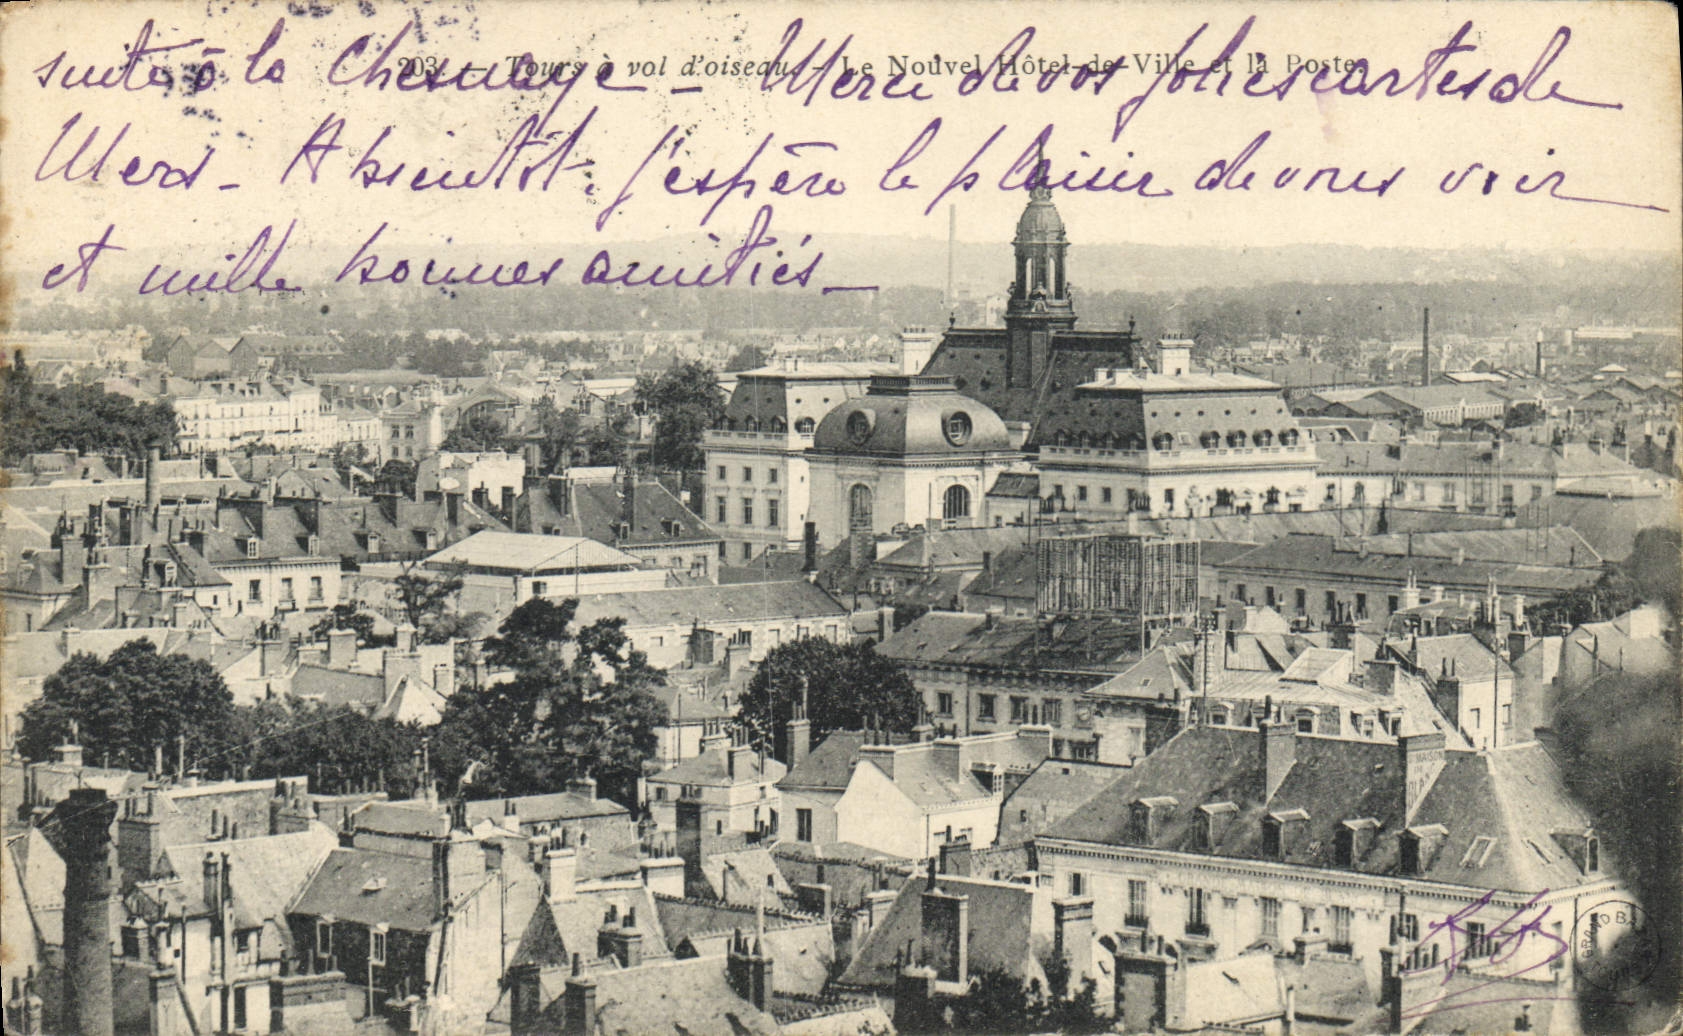 203. — Tours à vol d'oiseau. — Le Nouvel Hôtel-de-Ville et la Poste.
suite à la Chesnaye — Merci de vos jolies cartes de
Mers — A bientôt, j'espère le plaisir de vous voir
et mille bonnes amitiés —
MAISON
GRAND B